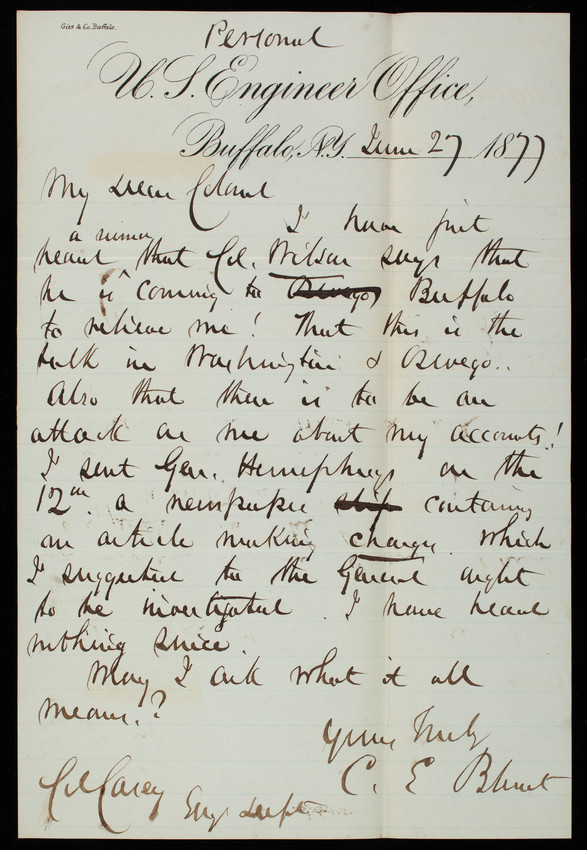 Gies & Co. Buffalo.
Personal
U.S. Engineer Office,
Buffalo, N.Y. June 27 1877
My Dear Colonel
I have just
a rumor
heard that Col. Wilson says that
he is coming to Oswego Buffalo
to relieve me! That this is the
talk in Washington & Oswego.
Also that there is to be an
attack on me about my accounts!
I sent Gen. Humphreys on the
12th a newspaper slip containing
an article making charges which
I suggested to the General ought
to be investigated. I have heard
nothing since.
May I ask what it all
means?
Yours truly
C. E. Blunt
Col Casey
Eng. Dept